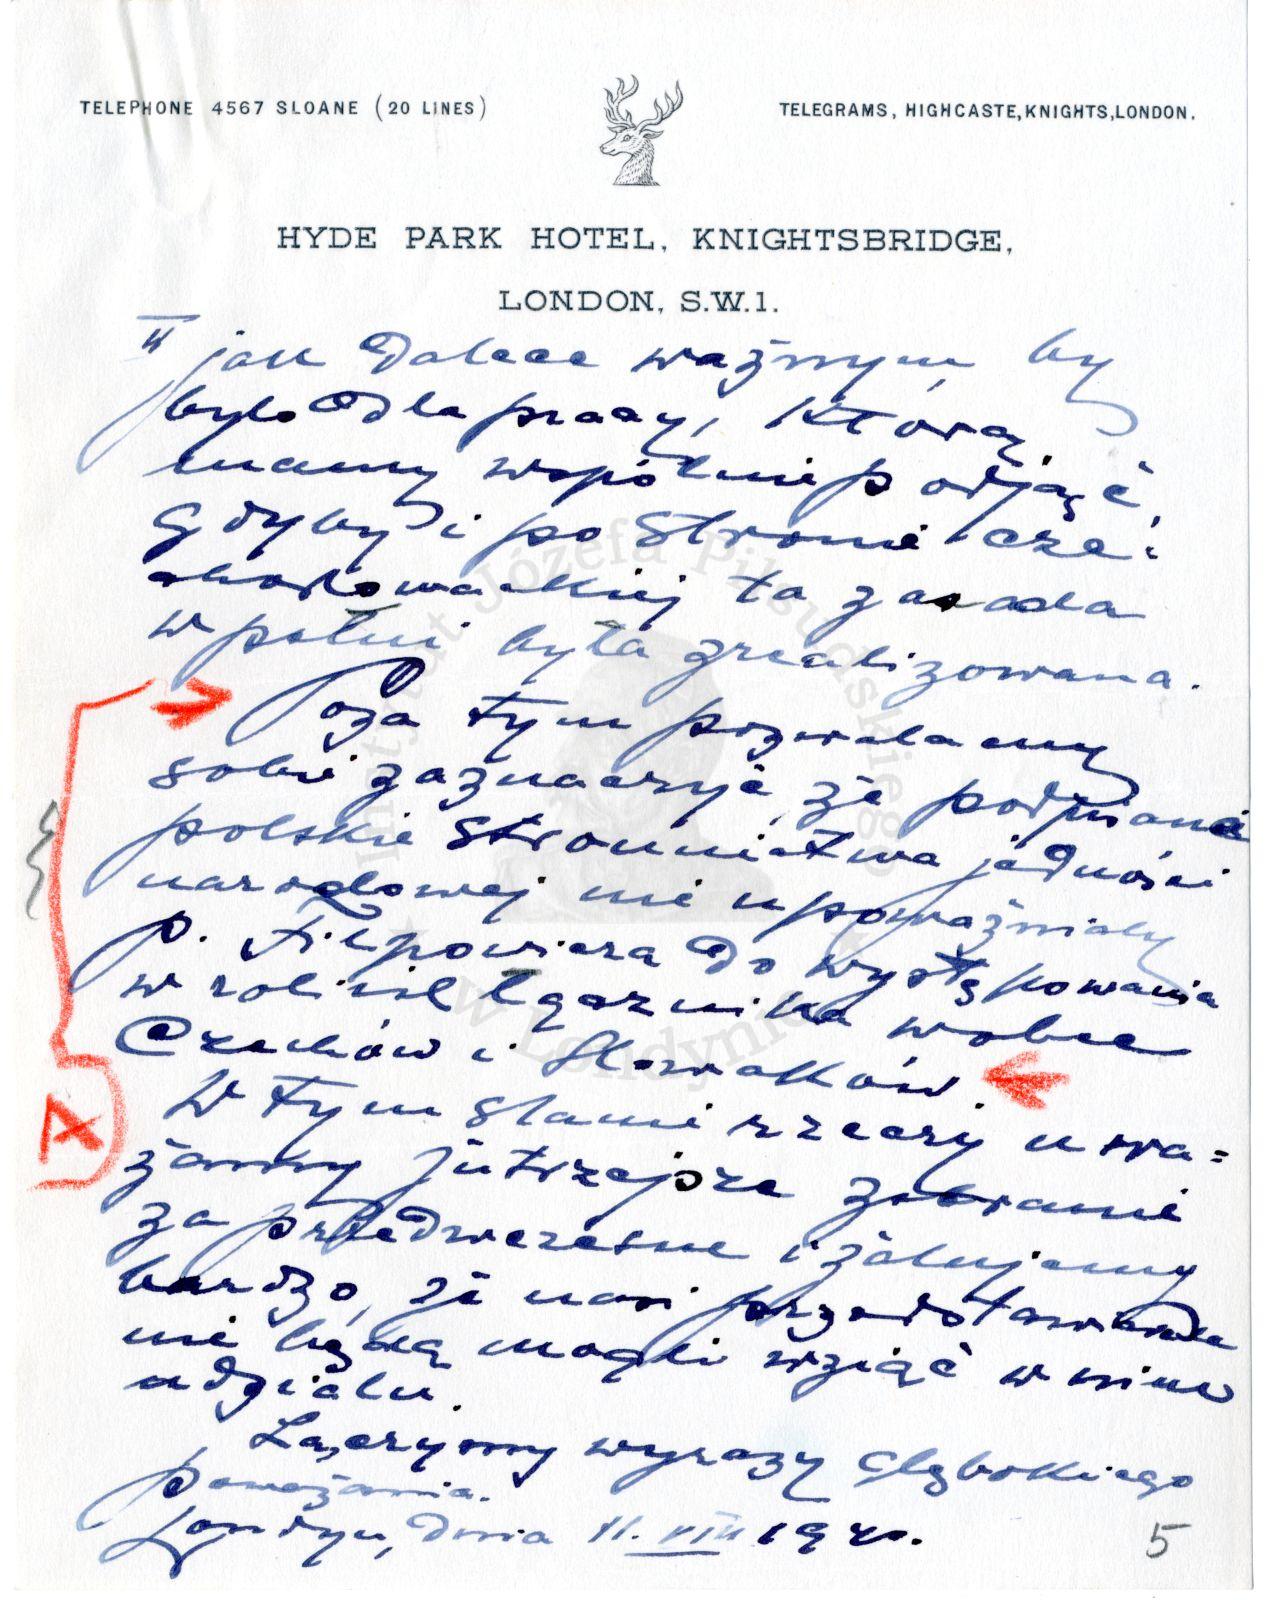 TELEPHONE 4567 SLOANE (20 LINES)
TELEGRAMS, HIGHCASTE, KNIGHTS, LONDON.
HYDE PARK HOTEL, KNIGHTSBRIDGE,
LONDON, S.W.1.
II
jak dalece ważnym by
było dla pracy, którą
mamy wspólnie podjąć,
gdyby i po stronie cze-
chosłowackiej ta zasada
w pełni była zrealizowana.
Poza tym pozwalamy
sobie zaznaczyć, że podpisane
polskie stronnictwa jedności
narodowej nie upoważniały
p. Filipowicza do występowania
w roli ich łącznika wobec
Czechów i Słowaków
W tym stanie rzeczy uwa=
żamy jutrzejsze zebranie
za przedwczesne i żałujemy
bardzo, że nasi przedstawiciele
nie będą mogli wziąć w nim
udziału.
Łączymy wyrazy głębokiego
poważania.
Londyn, dnia 11. VIII 1940.
A
5
Instytut Józefa Piłsudskiego
w Londynie